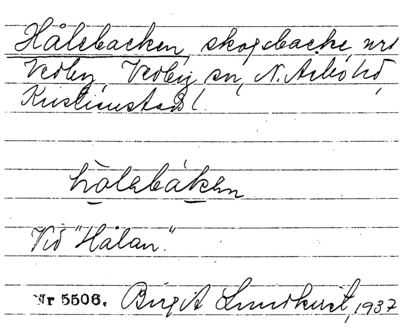 Hålebacken, skogsbacke, nrd
Vedby, Vedby sn, N. Åsbo hd,
Kristianstads l.
hòlabákən
Vid "Hålan".
Nr 5506. Birgit Lundkvist, 1937